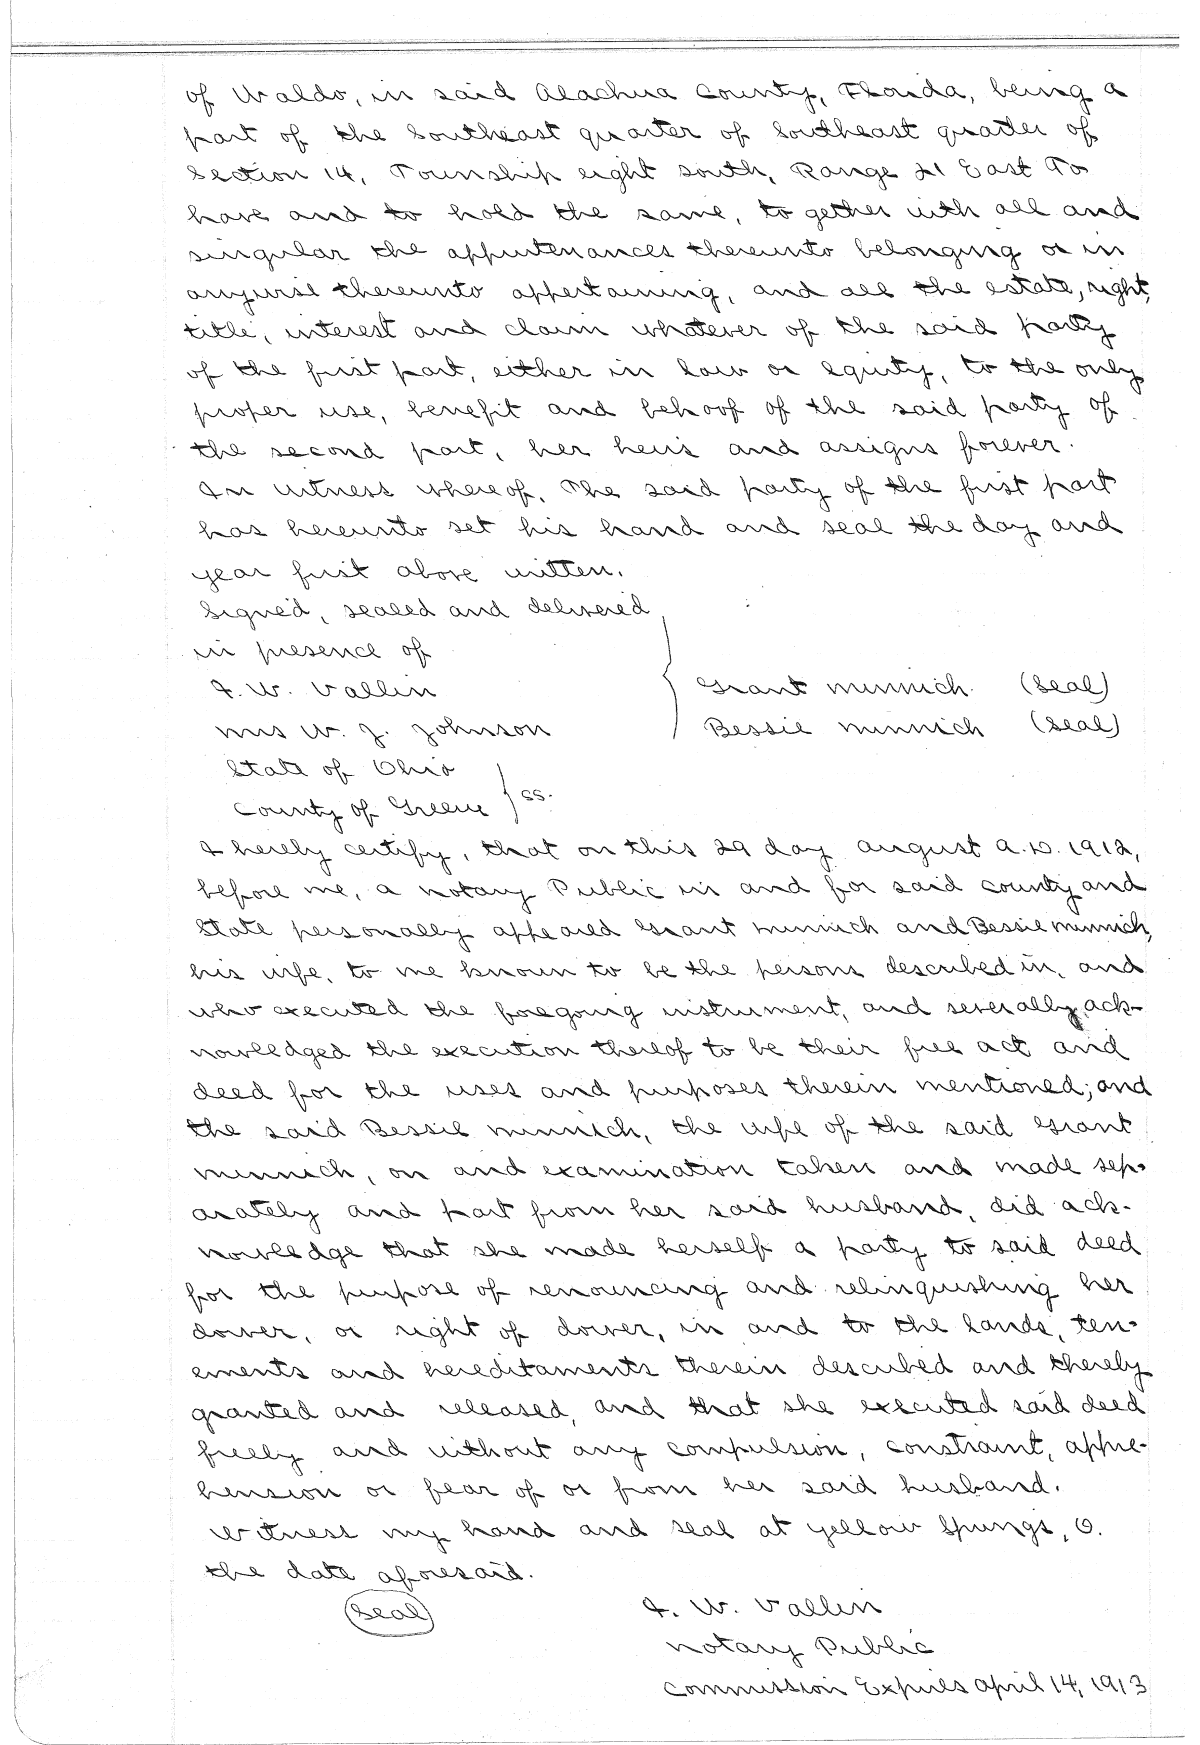 of Waldo, in said Alachua County, Florida, being a
part of the Southeast quarter of Southeast quarter of
Section 14, Township eight south, Range 21 East To
have and to hold the same, together with all and
singular the appurtenances thereunto belonging or in
anywise thereunto appertaining, and all the estate, right,
title, interest and claim whatever of the said party
of the first part, either in law or equity, to the only
proper use, benefit and behoof of the said party of
the second part, her heirs and assigns forever.
In witness whereof, The said party of the first part
has hereunto set his hand and seal the day and
year first above written.
Signed, sealed and delivered
in presence of
I. W. Vallin
Grant Minnich. (Seal)
Mrs W. J. Johnson
Bessie Minnich (Seal)
State of Ohio
County of Greene ss.
I hereby certify, that on this 29 day august a.D. 1912,
before me, a notary Public in and for said county and
State personally appeared Grant Minnich and Bessie Minnich,
his wife, to me known to be the persons described in, and
who executed the foregoing instrument, and severally ack-
nowledged the execution thereof to be their free act and
deed for the uses and purposes therein mentioned; and
the said Bessie Minnich, the wife of the said Grant
Minnich, on and examination taken and made sep-
arately and part from her said husband, did ack-
nowledge that she made herself a party to said deed
for the purpose of renouncing and relinquishing her
dower, or right of dower, in and to the lands, ten-
ements and hereditaments therein described and thereby
granted and released, and that she executed said deed
freely and without any compulsion, constraint, appre-
hension or fear of or from her said husband.
Witness my hand and seal at Yellow Springs, O.
the date aforesaid.
(Seal)
I. W. Vallin
Notary Public
Commission Expires April 14, 1913